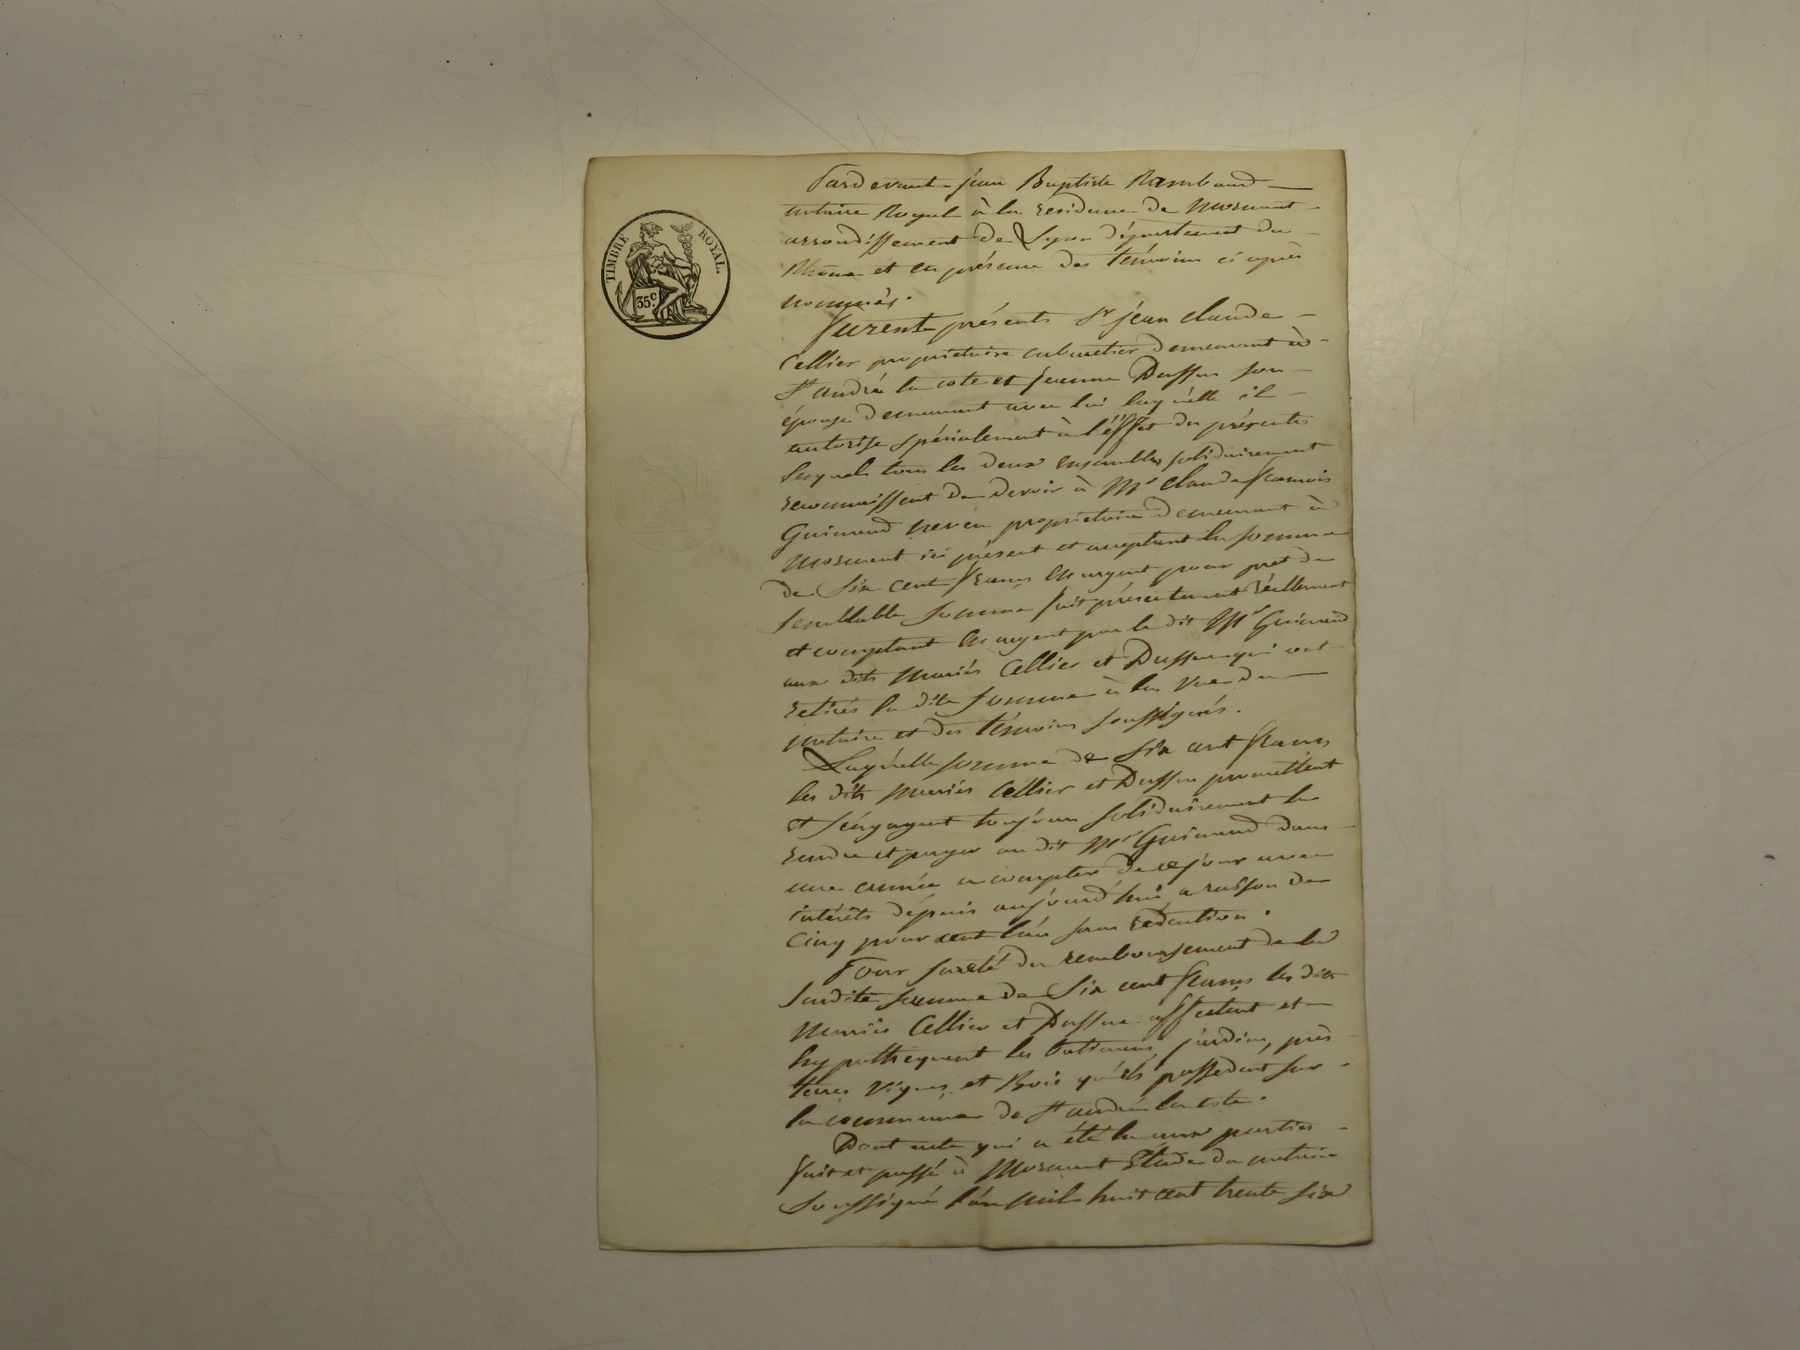 TIMBRE ROYAL.
35c.
Pardevant jean Baptiste Rambaud
notaire Royal à la residence de Mornant
arrondissement de Lyon département du
Rhône et en présence des témoins ci après
nommés.
furent présents Sr jean claude
Cellier propriétaire cabaretier demeurant à
St andré la cote et jeanne Dussur son
épouse demeurant avec lui laquelle il
autorise spécialement à l'effet des présentes
lesquels tous les deux ensembles solidairement
reconnaissent de devoir à Mr claude francois
Guinand neveu propriétaire demeurant à
Mornant ici présent et acceptant la somme
de Six cent francs en argent pour pret de
semblable somme fait présentement réellement
et comptant en argent par le dit Mr Guinand
aux dits mariés Cellier et Dussur qui ont
retirés la dite somme à la vue du
notaire et des témoins soussignés.
Laquelle somme de Six cent francs
les dits mariés Cellier et Dussur promettent
et s'engagent toujour solidairement la
rendre et payer au dit Mr Guinand dans
une année a compter de ce jour avec
intérêts dépuis aujourd'hui a raison de
Cinq pour cent l'an sans réduction.
Pour sureté du remboursement de la
susdite somme de Six cent francs les dits
mariés Cellier et Dussur affectent et
hypothequent les batimens, jardin, près
terres Vignes et Bois qu'ils possedent sur
la commune de St andré la cote.
Dont acte qui a été lu aux parties
fait et passé à Mornant Etude du notaire
soussigné l'an mil huit cent trente six